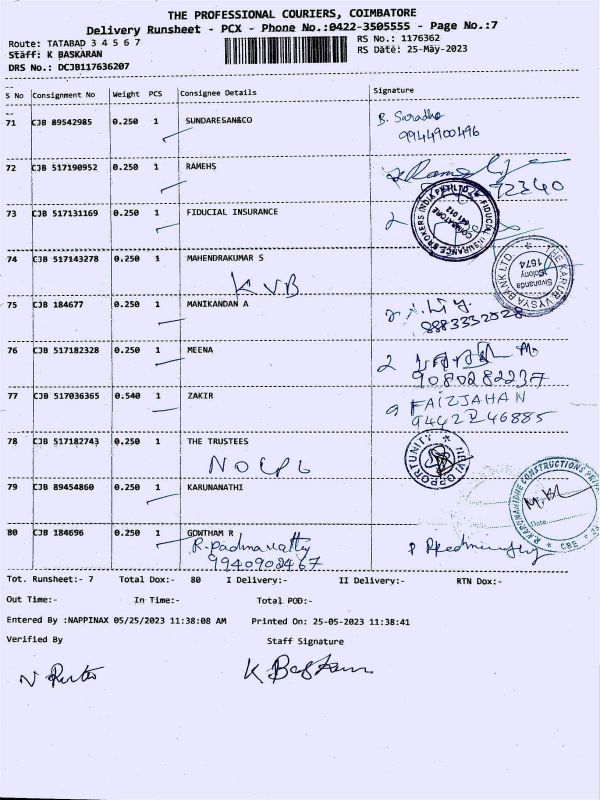 THE PROFESSIONAL COURIERS, COIMBATORE
Delivery Runsheet - PCX - Phone No.:0422-3505555 - Page No.:7
Route: TATABAD 3 4 5 6 7
RS No.: 1176362
Staff: K BASKARAN
RS Date: 25-May-2023
DRS No.: DCJB117636207
S No Consignment No Weight PCS Consignee Details Signature
71 CJB 89542985 0.250 1 SUNDARESAN&CO
9944900496
72 CJB 517190952 0.250 1 RAMEHS
72340
73 CJB 517131169 0.250 1 FIDUCIAL INSURANCE
FIDUCIAL INSURANCE BROKERS INDIA PVT LTD
COIMBATORE
641 012
74 CJB 517143278 0.250 1 MAHENDRAKUMAR S
KVB
THE KARUR VYSYA BANK LTD
Sivananda
Colony
1674
75 CJB 184677 0.250 1 MANIKANDAN A
8883332828
76 CJB 517182328 0.250 1 MEENA
9080282237
77 CJB 517036365 0.540 1 ZAKIR
FAIZJAHAN
9442246885
78 CJB 517182743 0.250 1 THE TRUSTEES
OPPORTUNITY
79 CJB 89454860 0.250 1 KARUNANATHI
CONSTRUCTIONS
Date
CBE
80 CJB 184696 0.250 1 GOWTHAM R
R. padmavathy
9940902467
Tot. Runsheet:- 7 Total Dox:- 80 I Delivery:- II Delivery:- RTN Dox:-
Out Time:- In Time:- Total POD:-
Entered By :NAPPINAX 05/25/2023 11:38:08 AM Printed On: 25-05-2023 11:38:41
Verified By Staff Signature
K Baskaran